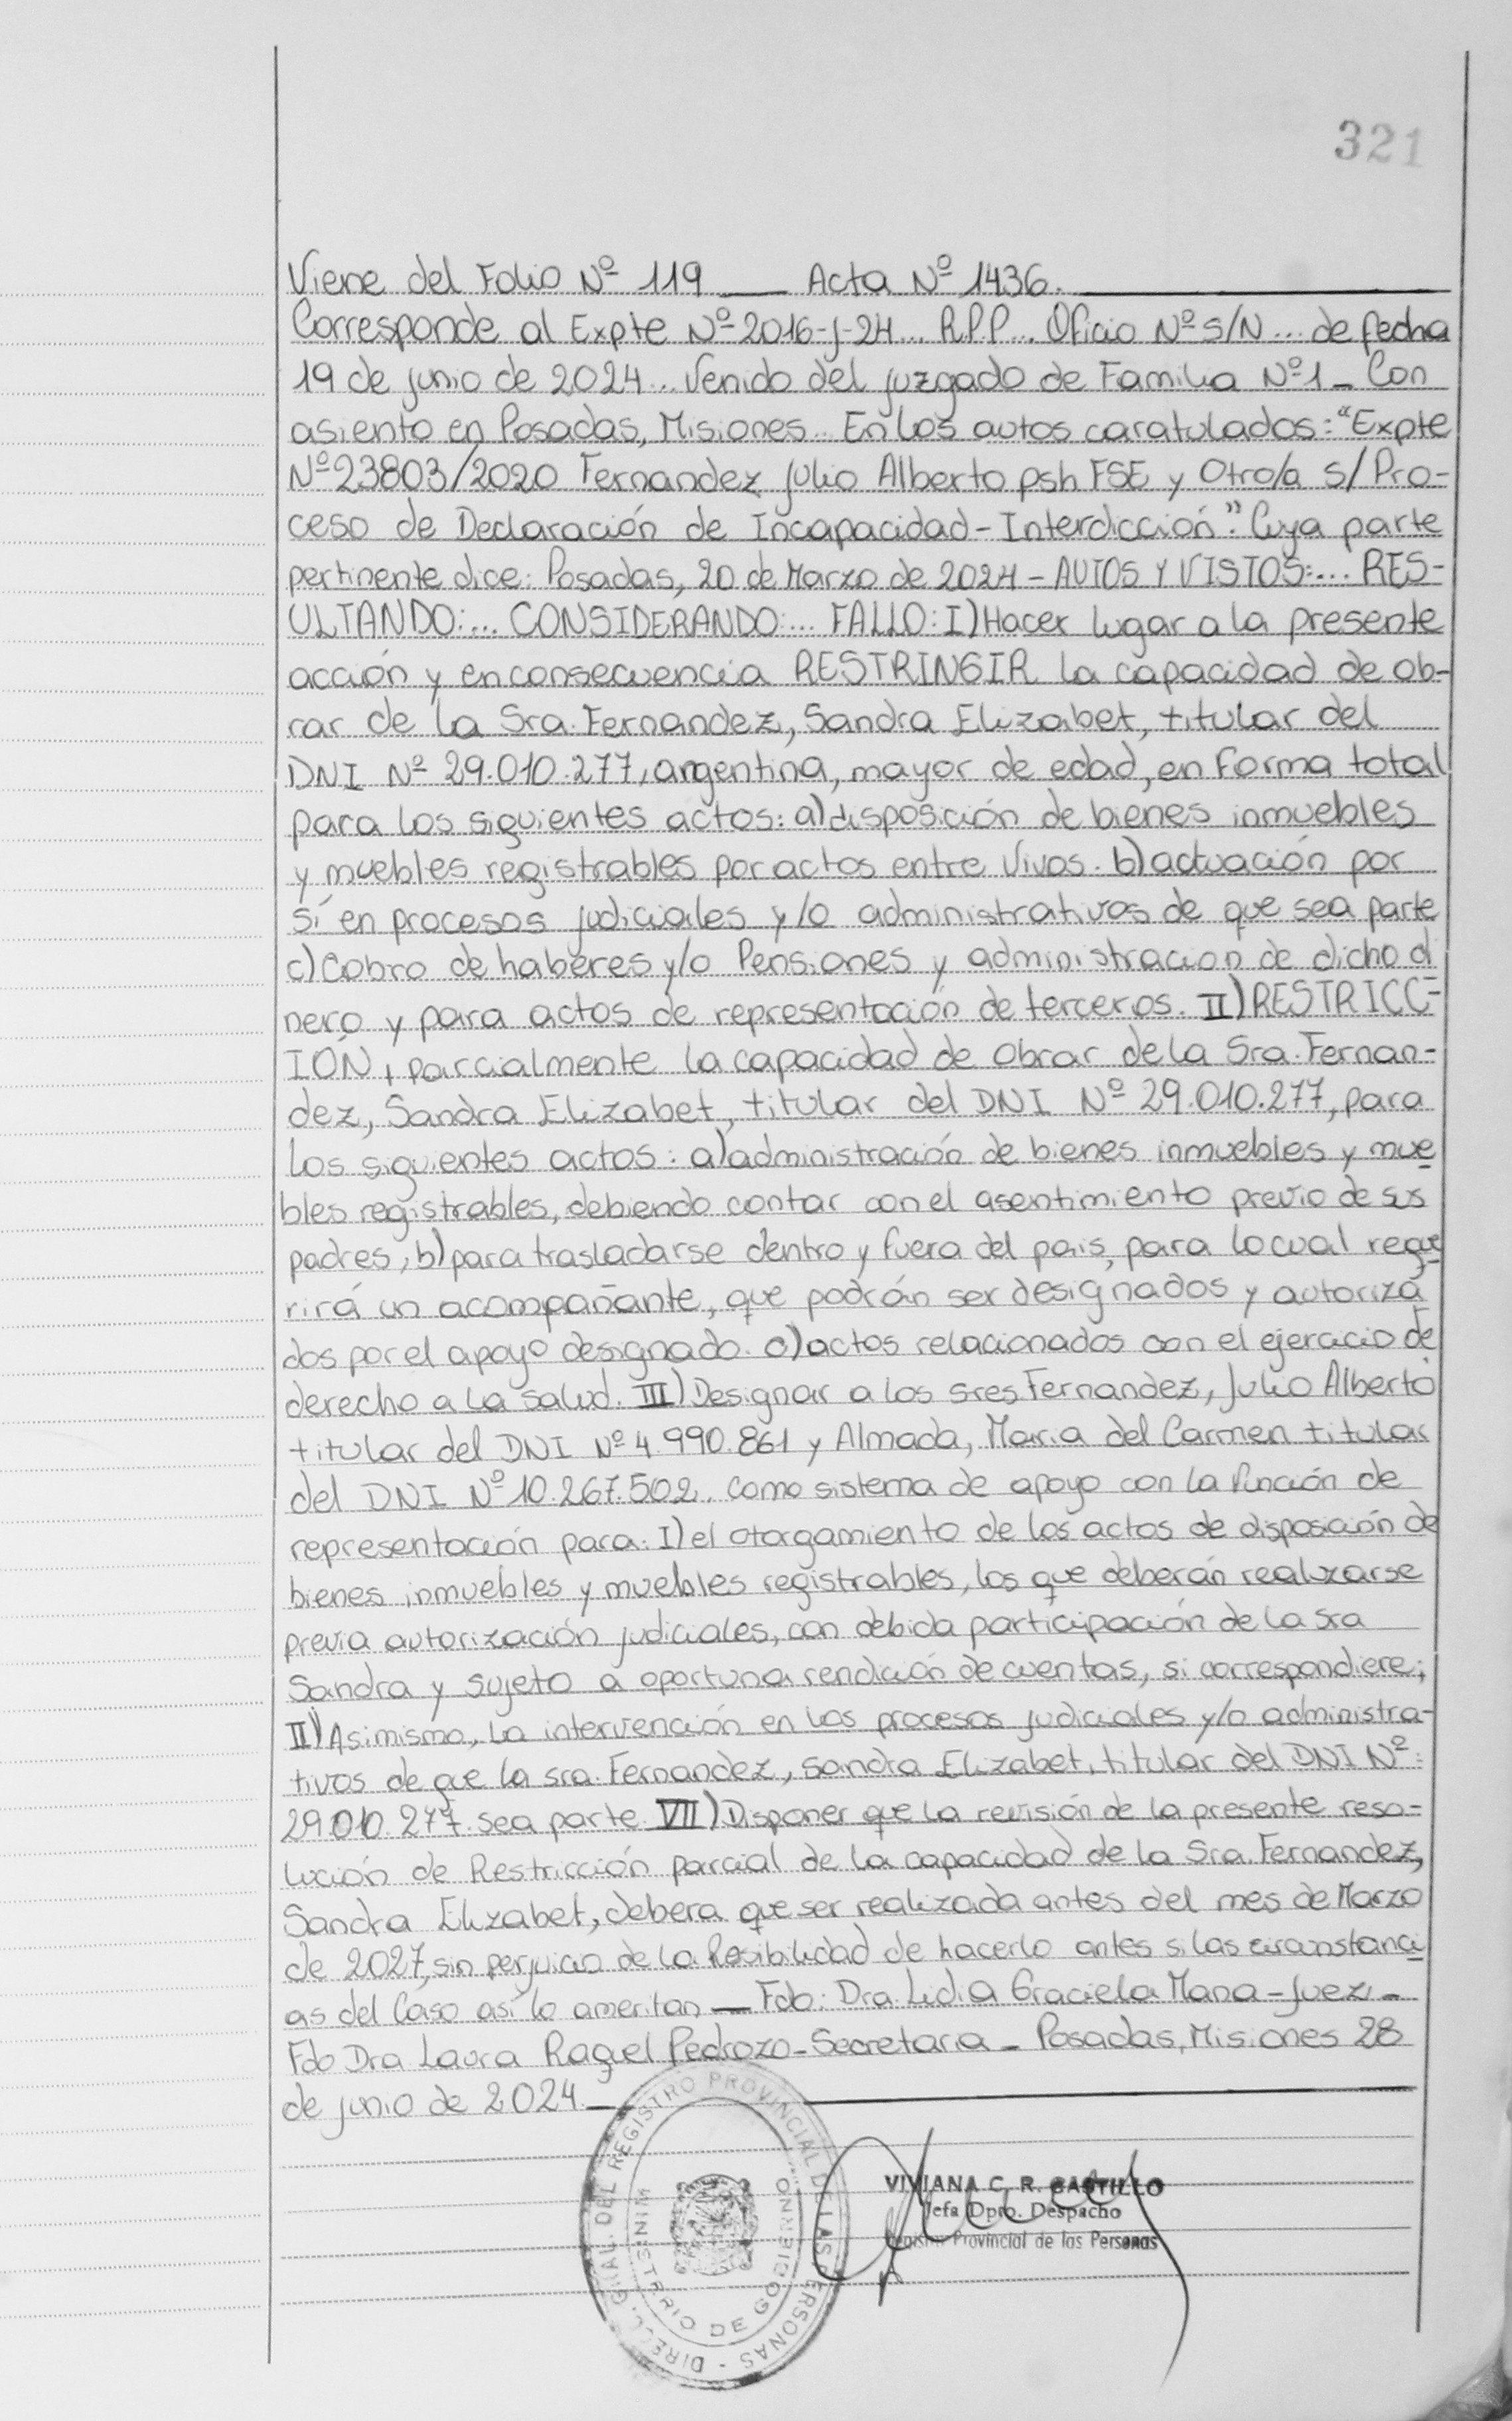 321
Viene del Folio Nº 119 __ Acta Nº 1436.
Corresponde al Expte Nº 2016-J-24... R.P.P... Oficio Nº S/N... de fecha
19 de junio de 2024... Venido del juzgado de Familia Nº1 _ Con
asiento en Posadas, Misiones... En los autos caratulados: "Expte
Nº 23803/2020 Fernandez Julio Alberto psh FSE y Otro/a S/ Pro-
ceso de Declaración de Incapacidad - Interdicción". Cuya parte
pertinente dice: Posadas, 20 de Marzo de 2024 - AUTOS Y VISTOS:... RES-
ULTANDO:... CONSIDERANDO:... FALLO: I) Hacer lugar a la presente
acción y en consecuencia RESTRINGIR la capacidad de ob-
rar de la Sra. Fernandez, Sandra Elizabet, titular del
DNI Nº 29.010.277, argentina, mayor de edad, en forma total
para los siguientes actos: a) disposición de bienes inmuebles
y muebles registrables por actos entre vivos. b) actuación por
sí en procesos judiciales y/o administrativos de que sea parte
c) Cobro de haberes y/o Pensiones y administracion de dicho di
nero y para actos de representación de terceros. II) RESTRICC-
IÓN, parcialmente la capacidad de obrar de la Sra. Fernan-
dez, Sandra Elizabet, titular del DNI Nº 29.010.277, para
los siguientes actos: a) administración de bienes inmuebles y mue
bles registrables, debiendo contar con el asentimiento previo de sus
padres, b) para trasladarse dentro y fuera del pais, para lo cual reque
rirá un acompañante, que podrán ser designados y autoriza
dos por el apoyo designado. c) actos relacionados con el ejercicio de
derecho a la salud. III) Designar a los sres. Fernandez, Julio Alberto
titular del DNI Nº 4.990.861 y Almada, Maria del Carmen titular
del DNI Nº 10.267.502. como sistema de apoyo con la función de
representación para: I) el otorgamiento de los actos de disposición de
bienes inmuebles y muebles registrables, los que deberán realizarse
previa autorización judiciales, con debida participación de la sra
Sandra y sujeto a oportuna rendición de cuentas, si correspondiere;
II) Asimismo, la intervención en los procesos judiciales y/o administra-
tivos de que la sra. Fernandez, Sandra Elizabet, titular del DNI Nº:
29.010.277. sea parte. VII) Disponer que la revisión de la presente reso-
lución de Restricción parcial de la capacidad de la Sra. Fernandez,
Sandra Elizabet, debera que ser realizada antes del mes de Marzo
de 2027, sin perjuicio de la Posibilidad de hacerlo antes si las circunstanci
as del Caso así lo ameritan __ Fdo: Dra. Lidia Graciela Mana - Juez _
Fdo Dra Laura Raquel Pedrozo - Secretaria _ Posadas, Misiones 28
de junio de 2024. __
DIRECC. GRAL. DEL REGISTRO PROVINCIAL DE LAS PERSONAS -
MINISTERIO DE GOBIERNO
VIVIANA C. R. CASTILLO
Jefa Dpto. Despacho
Registro Provincial de las Personas